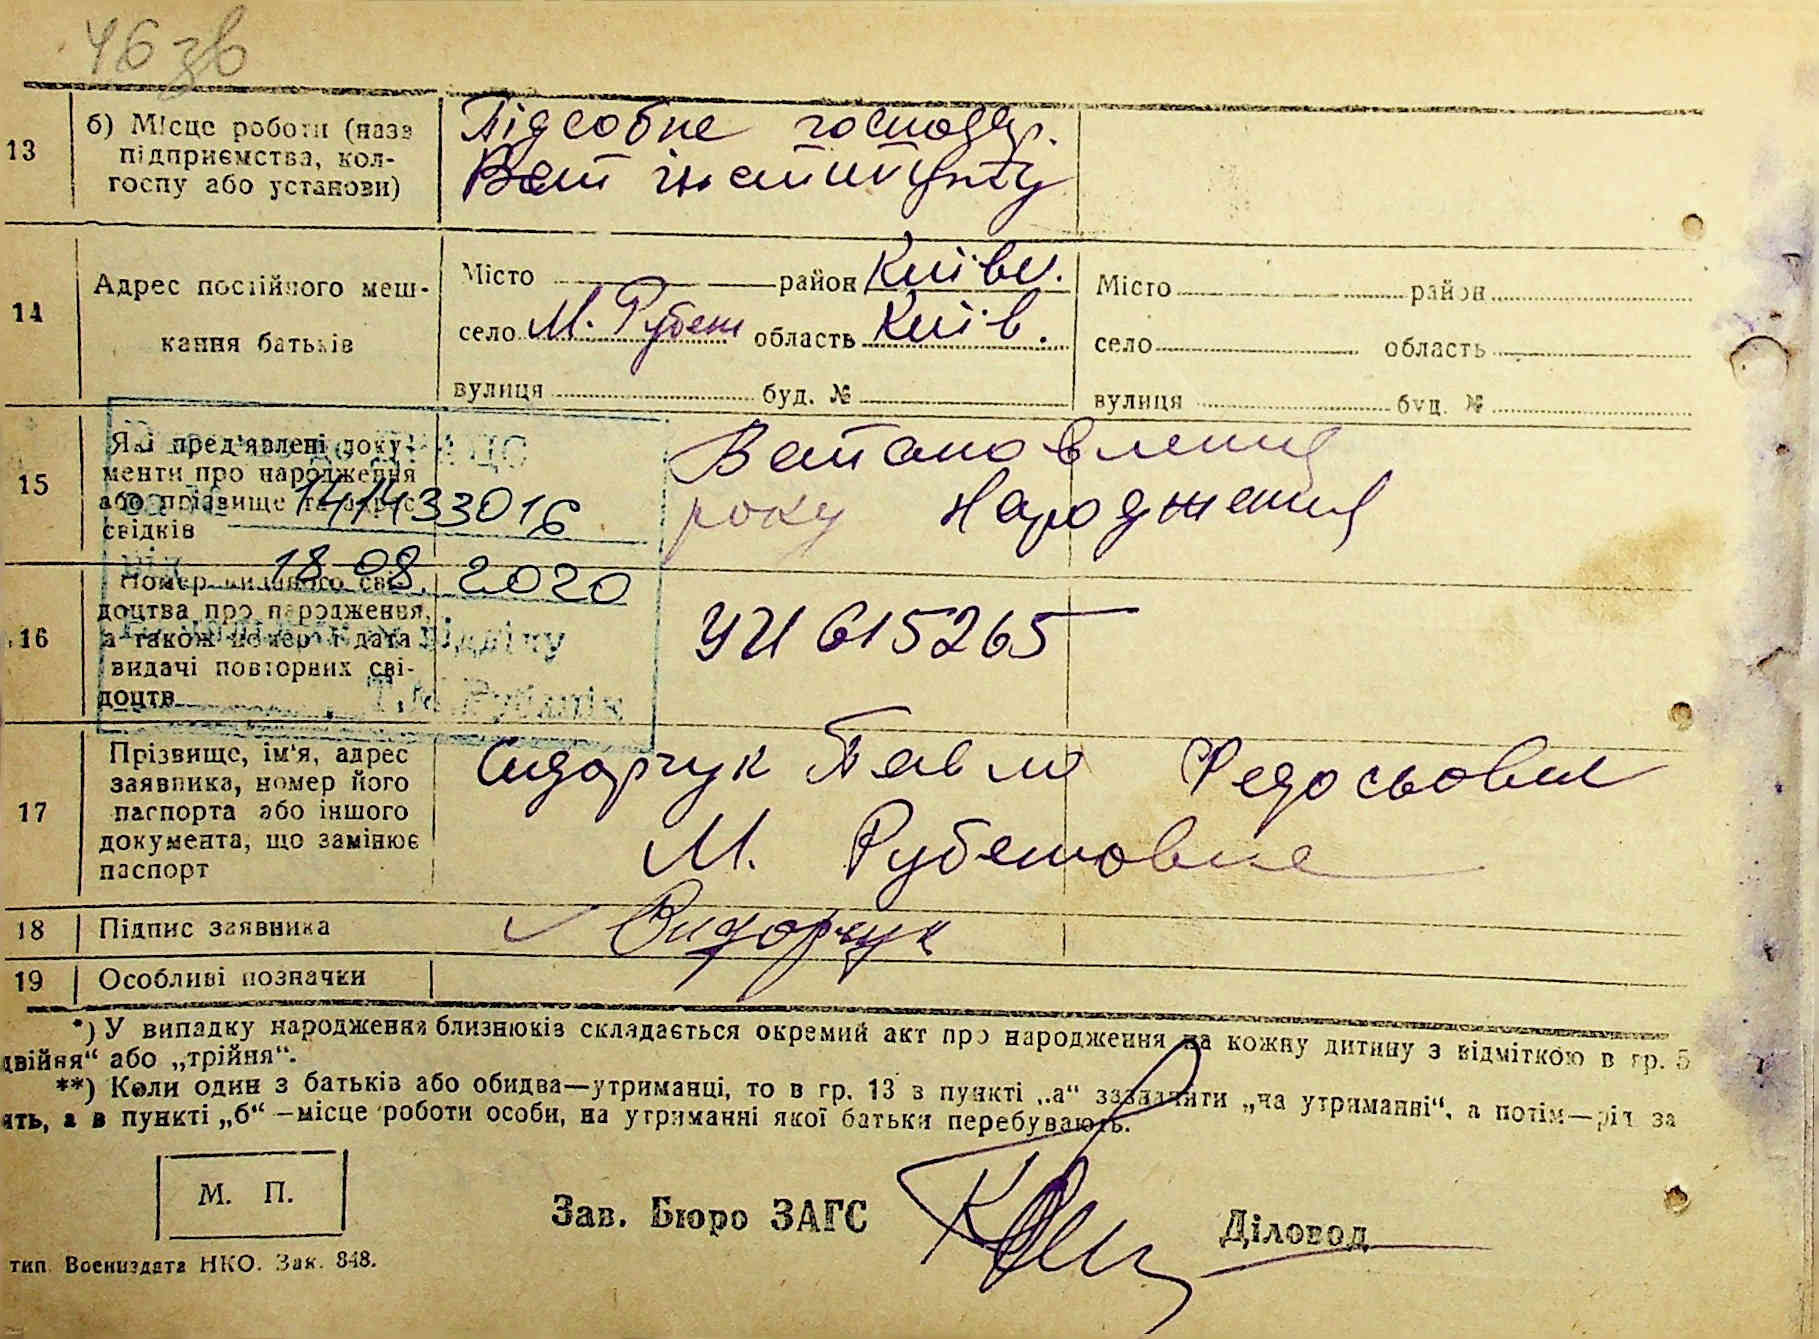 46 зв
13
б) Місце роботи (назва
підприємства, кол-
госпу або установи)
Підсобне господар.
Вет інституту
14
Адрес постійного меш-
кання батьків
Місто район Київськ.
село М. Рубеж область Київ.
вулиця буд. №
Місто район
село область
вулиця буд. №
15
Які пред'явлені доку-
менти про народження
або прізвище та адрес
свідків
Встановлення
року народження
14433016
18 08. 2020
16
Номер виданого сві-
доцтва про народження,
а також номер і дата
видачі повторних сві-
доцтв
відділу
УИ 615265
17
Прізвище, ім'я, адрес
заявника, номер його
паспорта або іншого
документа, що замінює
паспорт
Сидорчук Павло Федосьович
М. Рубежовка
18 Підпис заявника
Сидорчук
19 Особливі позначки
*) У випадку народження близнюків складається окремий акт про народження на кожну дитину з відміткою в гр. 5
двійня“ або „трійня“.
**) Коли один з батьків або обидва—утриманці, то в гр. 13 в пункті „а“ зазначити „на утриманні“, а потім—рід за
ять, а в пункті „б“—місце роботи особи, на утриманні якої батьки перебувають.
М. П.
Зав. Бюро ЗАГС
Діловод
тип. Воениздата НКО. Зак. 848.